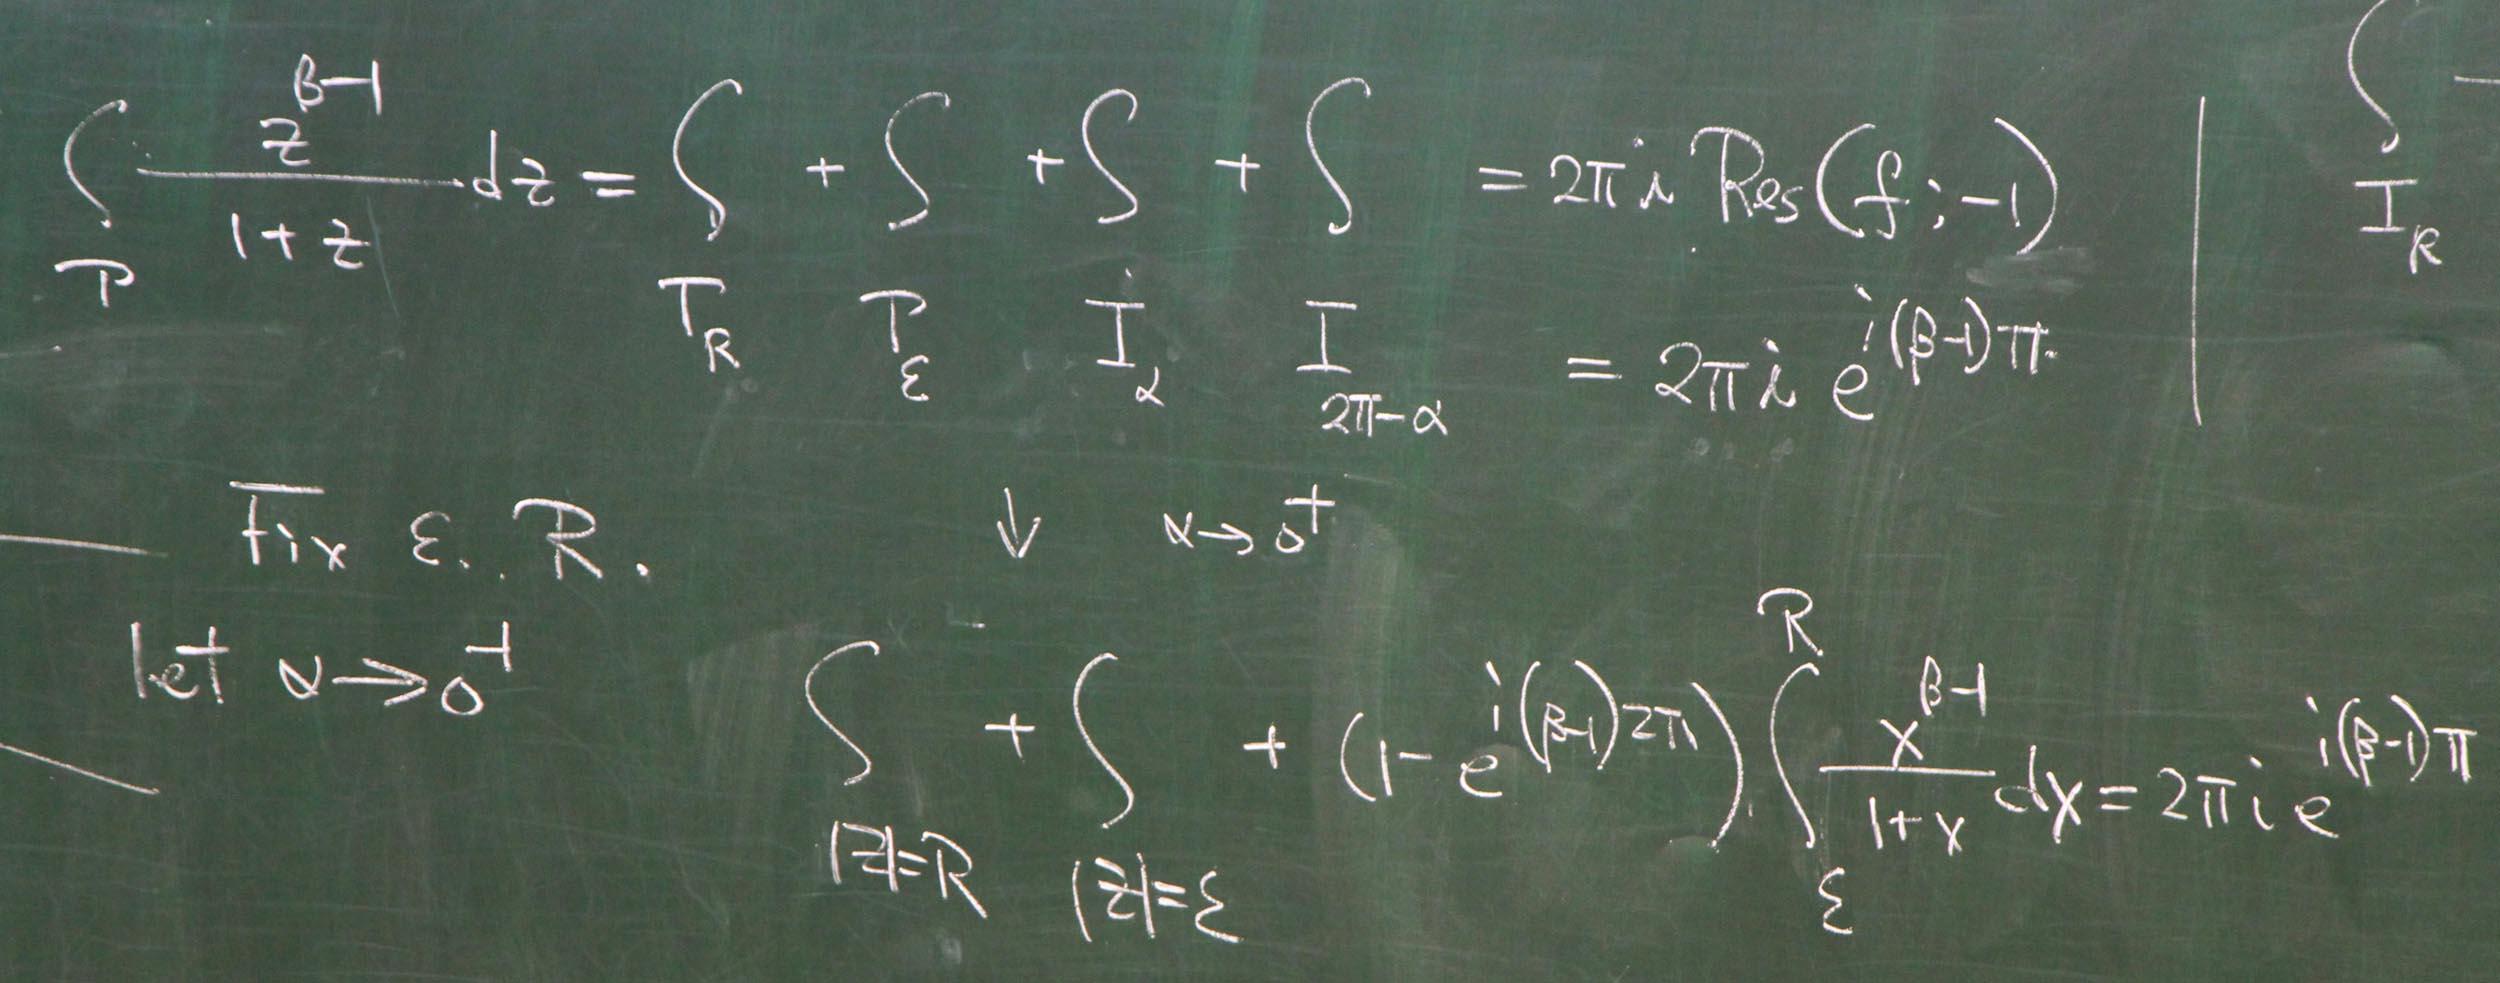 ∫_Γ z^{β-1}/(1+z) dz = ∫_{Γ_R} + ∫_{Γ_ε} + ∫_{I_α} + ∫_{I_{2π-α}} = 2πi Res(f; -1)
= 2πi e^{i(β-1)π}
∫_{I_R}
Fix ε, R.
↓ α→0^+
let α→0^+
∫_{|z|=R} + ∫_{|z|=ε} + (1-e^{i(β-1)2π}) ∫_ε^R x^{β-1}/(1+x) dx = 2πi e^{i(β-1)π}